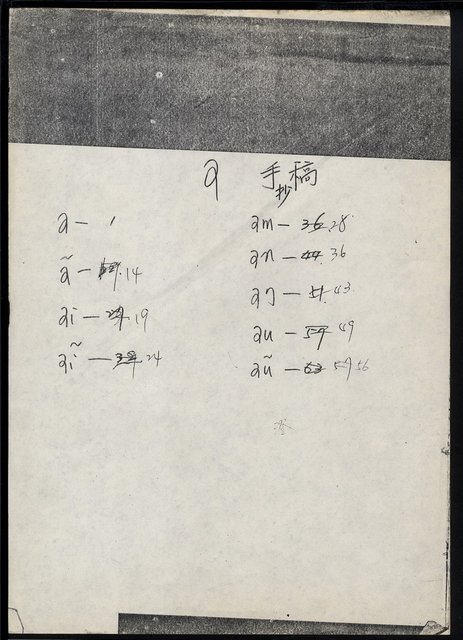 a 手稿
抄
a — 1
ã — 14
ai — 19
aĩ — 24
am — 36 28
an — 44 36
aŋ — 51 43
au — 57 49
aũ — 63 59 56